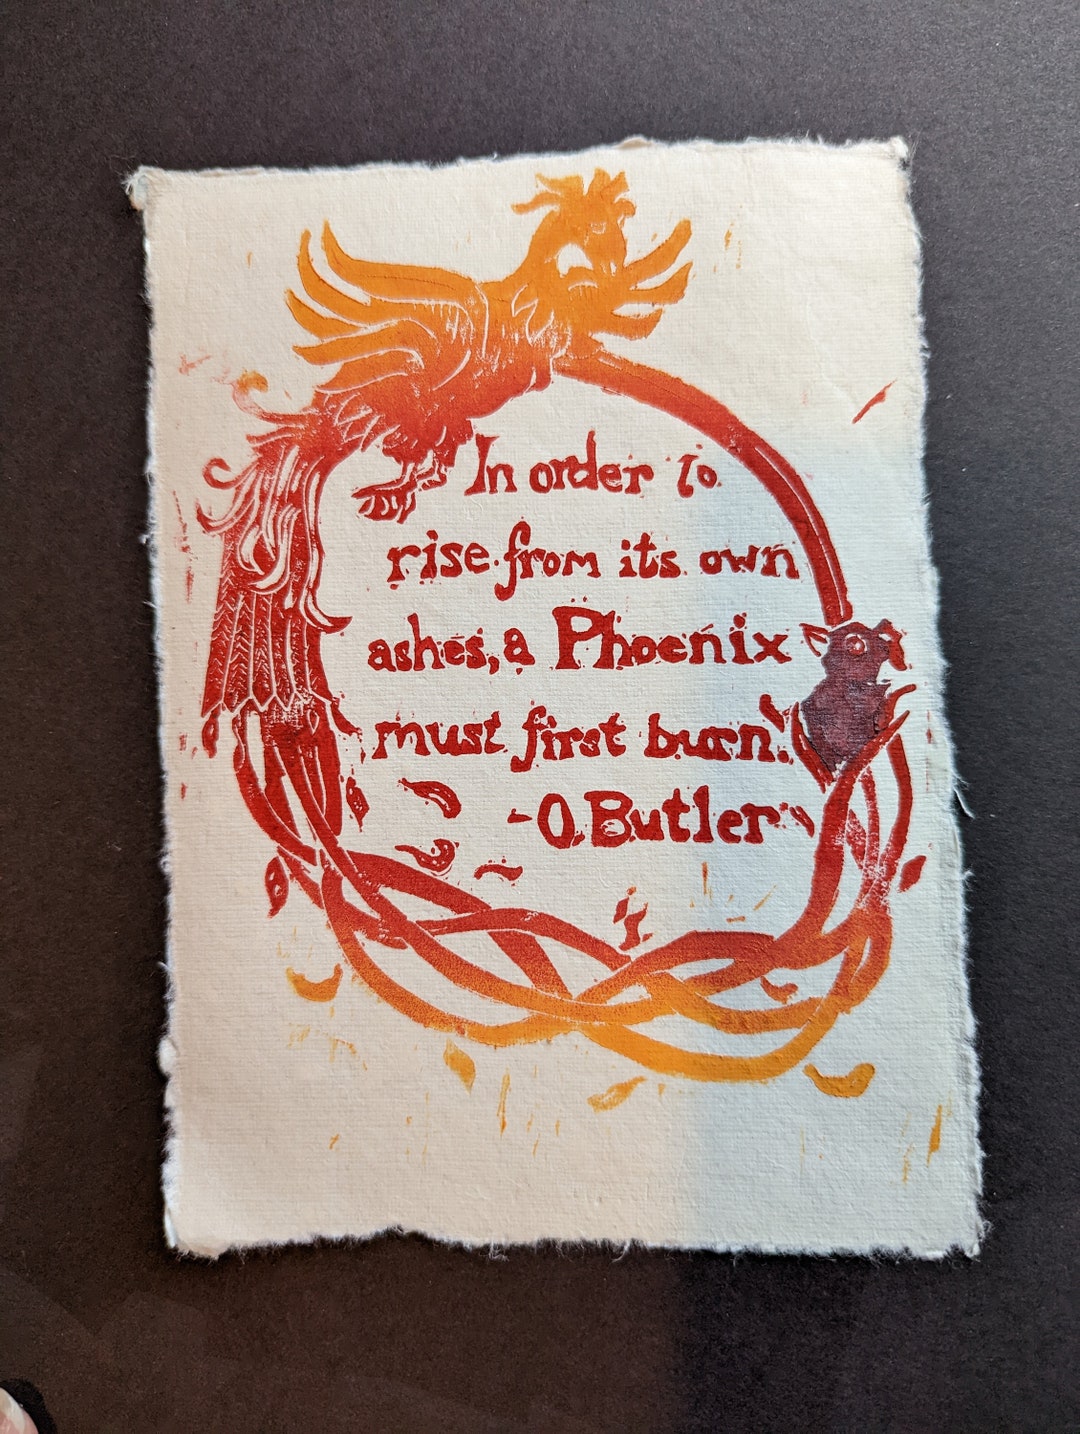 In order to
rise from its own
ashes, a Phoenix
must first burn.
- O. Butler